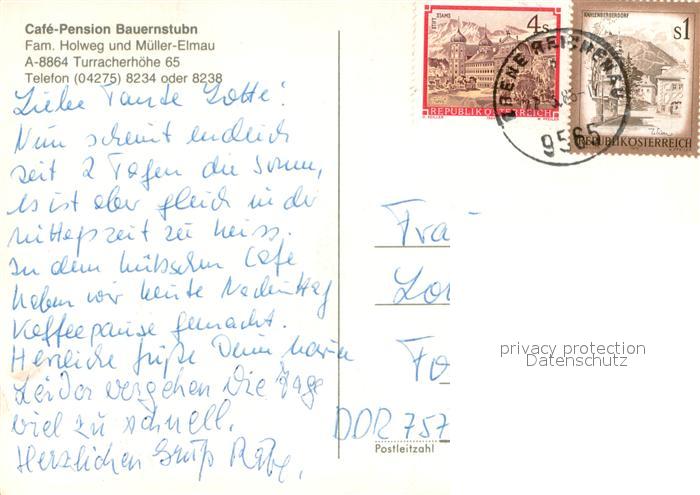 Café-Pension Bauernstubn
Fam. Holweg und Müller-Elmau
A-8864 Turracherhöhe 65
Telefon (04275) 8234 oder 8238
Liebe Tante Lotte!
Nun scheint endlich
seit 2 Tagen die Sonne,
es ist aber gleich in der
Mittagszeit zu heiss.
In dem hübschen Cafe
haben wir heute Nachmittag
Kaffeepause gemacht.
Herzliche Grüße Deine Maria
Leider vergehen die Tage
viel zu schnell.
Herzlichen Gruß
STIFT STAMS
4s
REPUBLIK ÖSTERREICH
KAHLENBERGERDORF
s1
Wien
REPUBLIK ÖSTERREICH
EBENE REICHENAU
9565
Fra
Lo
Fo
privacy protection
Datenschutz
DDR 757
Postleitzahl